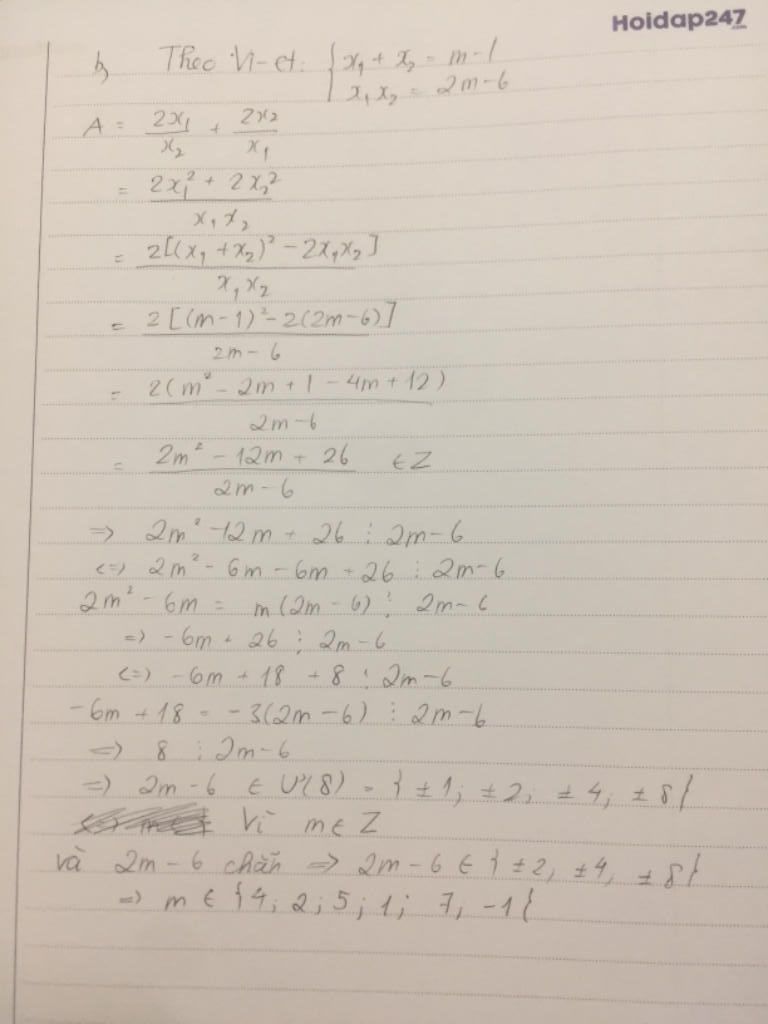 Hoidap247.com
b, Theo Vi-et: { x₁ + x₂ = m - 1
x₁x₂ = 2m - 6
A = 2x₁/x₂ + 2x₂/x₁
= (2x₁² + 2x₂²)/(x₁x₂)
= 2[(x₁ + x₂)² - 2x₁x₂]/(x₁x₂)
= 2[(m-1)² - 2(2m-6)]/(2m-6)
= 2(m² - 2m + 1 - 4m + 12)/(2m-6)
= (2m² - 12m + 26)/(2m-6) ∈ Z
=> 2m² - 12m + 26 ⋮ 2m-6
<=> 2m² - 6m - 6m + 26 ⋮ 2m-6
2m² - 6m = m(2m-6) ⋮ 2m-6
=> -6m + 26 ⋮ 2m-6
<=> -6m + 18 + 8 ⋮ 2m-6
-6m + 18 = -3(2m-6) ⋮ 2m-6
=> 8 ⋮ 2m-6
=> 2m-6 ∈ Ư(8) = {±1; ±2; ±4; ±8}
Vì m ∈ Z
và 2m-6 chẵn => 2m-6 ∈ {±2, ±4, ±8}
=> m ∈ {4; 2; 5; 1; 7, -1}